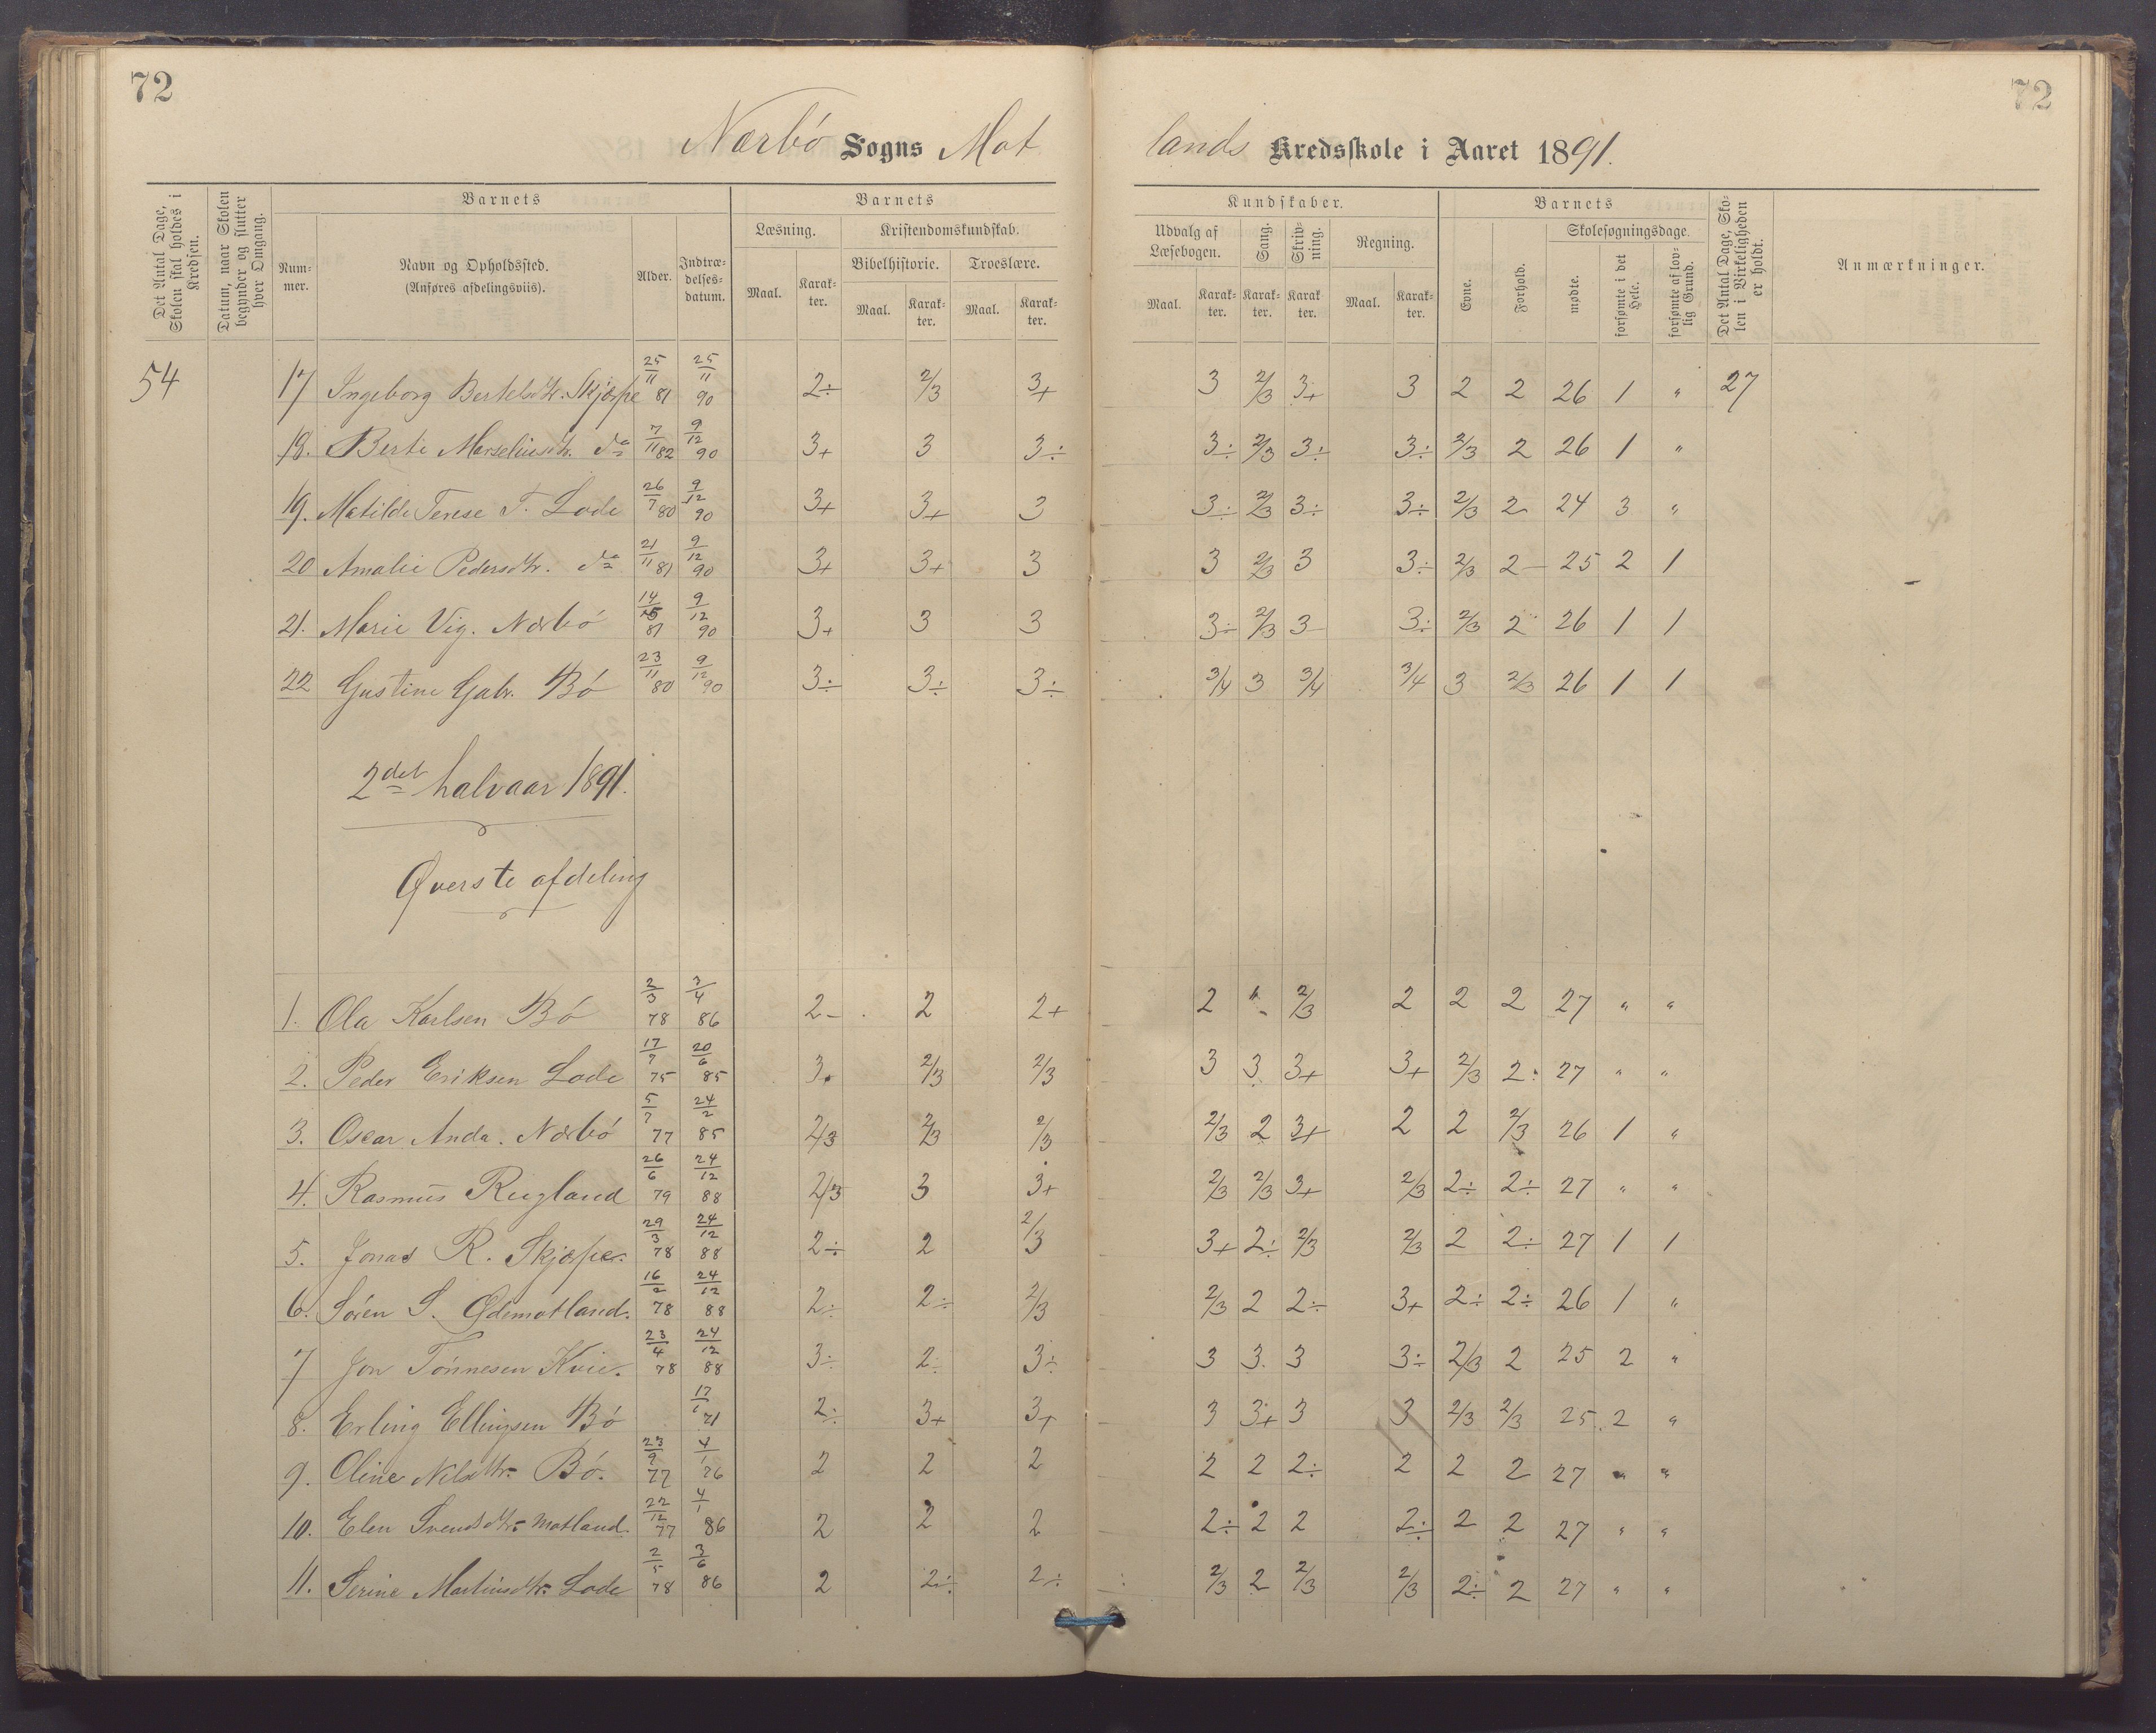 72
72
Nærbø Sogns Mot
lands Kredsskole i Aaret 1891.
Det Antal Dage, Skolen skal holdes i Kredsen.
Datum, naar Skolen begynder og slutter hver Omgang.
Barnets
Num-mer.
Navn og Opholdssted.
(Anføres afdelingsviis).
Alder.
Indtræ-delses-datum.
Barnets
Læsning.
Kristendomskundskab.
Bibelhistorie.
Troeslære.
Maal. Karak-ter. Maal. Karak-ter. Maal. Karak-ter.
Kundskaber.
Udvalg af Læsebogen.
Sang.
Skriv-ning.
Regning.
Maal. Karak-ter. Karak-ter. Karak ter. Maal. Karak-ter.
Barnets
Evne.
Forhold.
Skolesøgningsdage.
mødte.
forsømte i det Hele.
forsømte af lov-lig Grund.
Det Antal Dage, Sko-len i Virkeligheden er holdt.
Anmærkninger.
54 17 Ingeborg Bertelsdtr. Skjæpe 25/11 81 25/11 90 2÷ 2/3 3+ 3 2/3 3+ 3 2 2 26 1 " 27
18. Berte Marseliusdtr. do 7/11 82 9/12 90 3+ 3 3÷ 3÷ 2/3 3÷ 3÷ 2/3 2 26 1 "
19. Matilde Terese T. Lode 26/7 80 9/12 90 3+ 3+ 3 3÷ 2/3 3÷ 3÷ 2/3 2 24 3 "
20 Amalie Pedersdtr. do 21/11 81 9/12 90 3+ 3+ 3 3 2/3 3 3÷ 2/3 2 25 2 1
21. Marie Vig. Nærbø 14/ 81 9/12 90 3+ 3 3 3÷ 2/3 3 3÷ 2/3 2 26 1 1
22 Gustine Gabr. Bø 23/11 80 9/12 90 3÷ 3÷ 3÷ 3/4 3 3/4 3/4 3 2/3 26 1 1
2det halvaar 1891.
Øverste afdeling
1. Ola Karlsen Bø 2/3 78 3/4 86 2 2 2+ 2 " 2/3 2 2 2 27 " "
2. Peder Eriksen Lode 17/7 75 20/6 85 3. 2/3 2/3 3 3 3+ 3+ 2/3 2÷ 27 " "
3. Oscar Anda. Nærbø 5/7 77 24/2 85 2/3 2/3 2/3 2/3 2 3+ 2 2 2/3 26 1 "
4. Rasmus Rugland 26/6 79 24/12 88 2/3 3 3+ 2/3 2/3 3+ 2/3 2÷ 2÷ 27 " "
5. Jonas R. Skjæpe. 29/3 78 24/12 88 2÷ 2 2/3 3+ 2÷ 2/3 2/3 2 2÷ 27 1 1
6. Søren S. Ødemotland. 16/2 78 24/12 88 2÷ 2÷ 2/3 2/3 2 2÷ 3+ 2÷ 2÷ 26 1 "
7 Jon Tønnesen Kvie. 23/4 78 24/12 88 3÷ 2÷ 3÷ 3 3. 3 3÷ 2/3 2 25 2 "
8. Erling Ellingsen Bø 2÷ 3+ 3+ 3 3+ 3 3 2/3 2/3 25 2 "
9. Oline Nilsdtr. Bø. 23/9 77 4/1 2 2 2 2 2 2÷ 2 2 2 27 " "
10. Elen Svendsdtr. Motland. 22/12 77 4/1 86 2 2 2 2÷ 2 2 2÷ 2 2 27 " "
11. Serine Martinsdtr. Lode 2/5 78 3/6 86 2 2÷ 2÷ 2/3 2 2/3 2/3 2÷ 2 27 " "